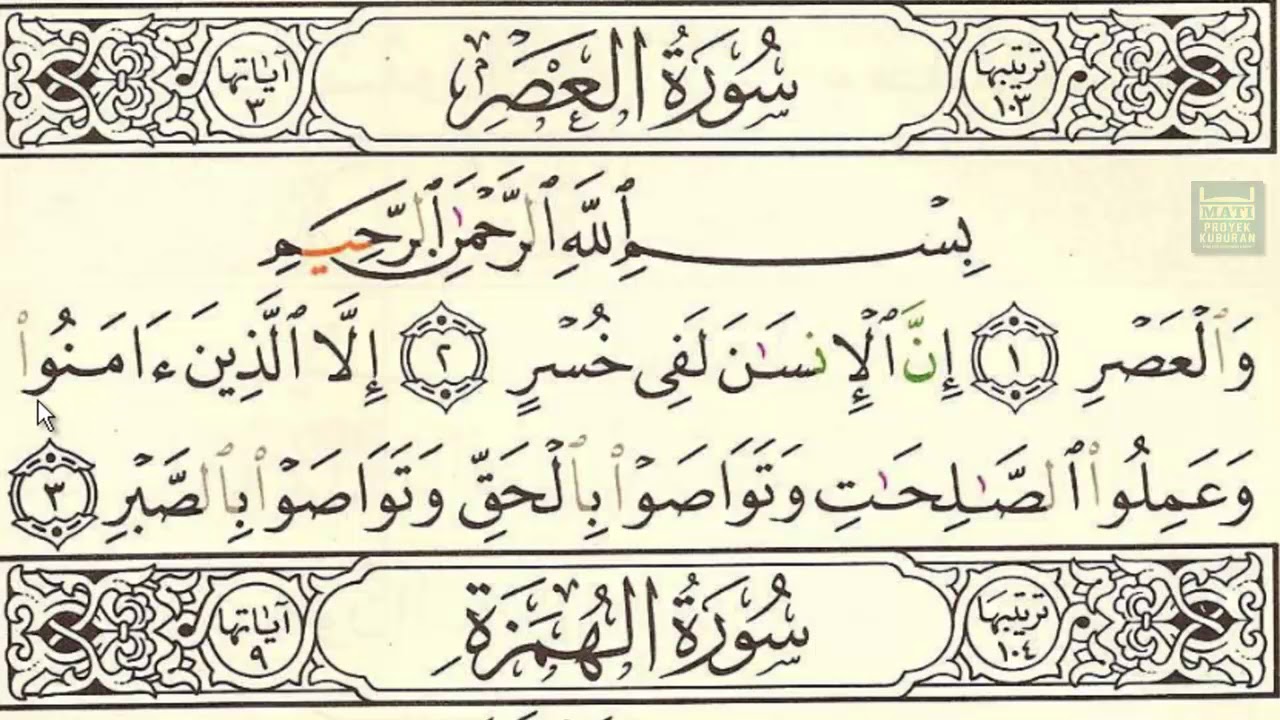 ترتيبها ١٠٣ سُورَةُ العَصْرِ آياتها ٣
بِسْمِ ٱللَّهِ ٱلرَّحْمَٰنِ ٱلرَّحِيمِ
MATI
PROYEK
KUBURAN
وَٱلْعَصْرِ ١ إِنَّ ٱلْإِنسَـٰنَ لَفِى خُسْرٍ ٢ إِلَّا ٱلَّذِينَ ءَامَنُوا۟
وَعَمِلُوا۟ ٱلصَّـٰلِحَـٰتِ وَتَوَاصَوْا۟ بِٱلْحَقِّ وَتَوَاصَوْا۟ بِٱلصَّبْرِ ٣
ترتيبها ١٠٤ سُورَةُ الهُمَزَةِ آياتها ٩